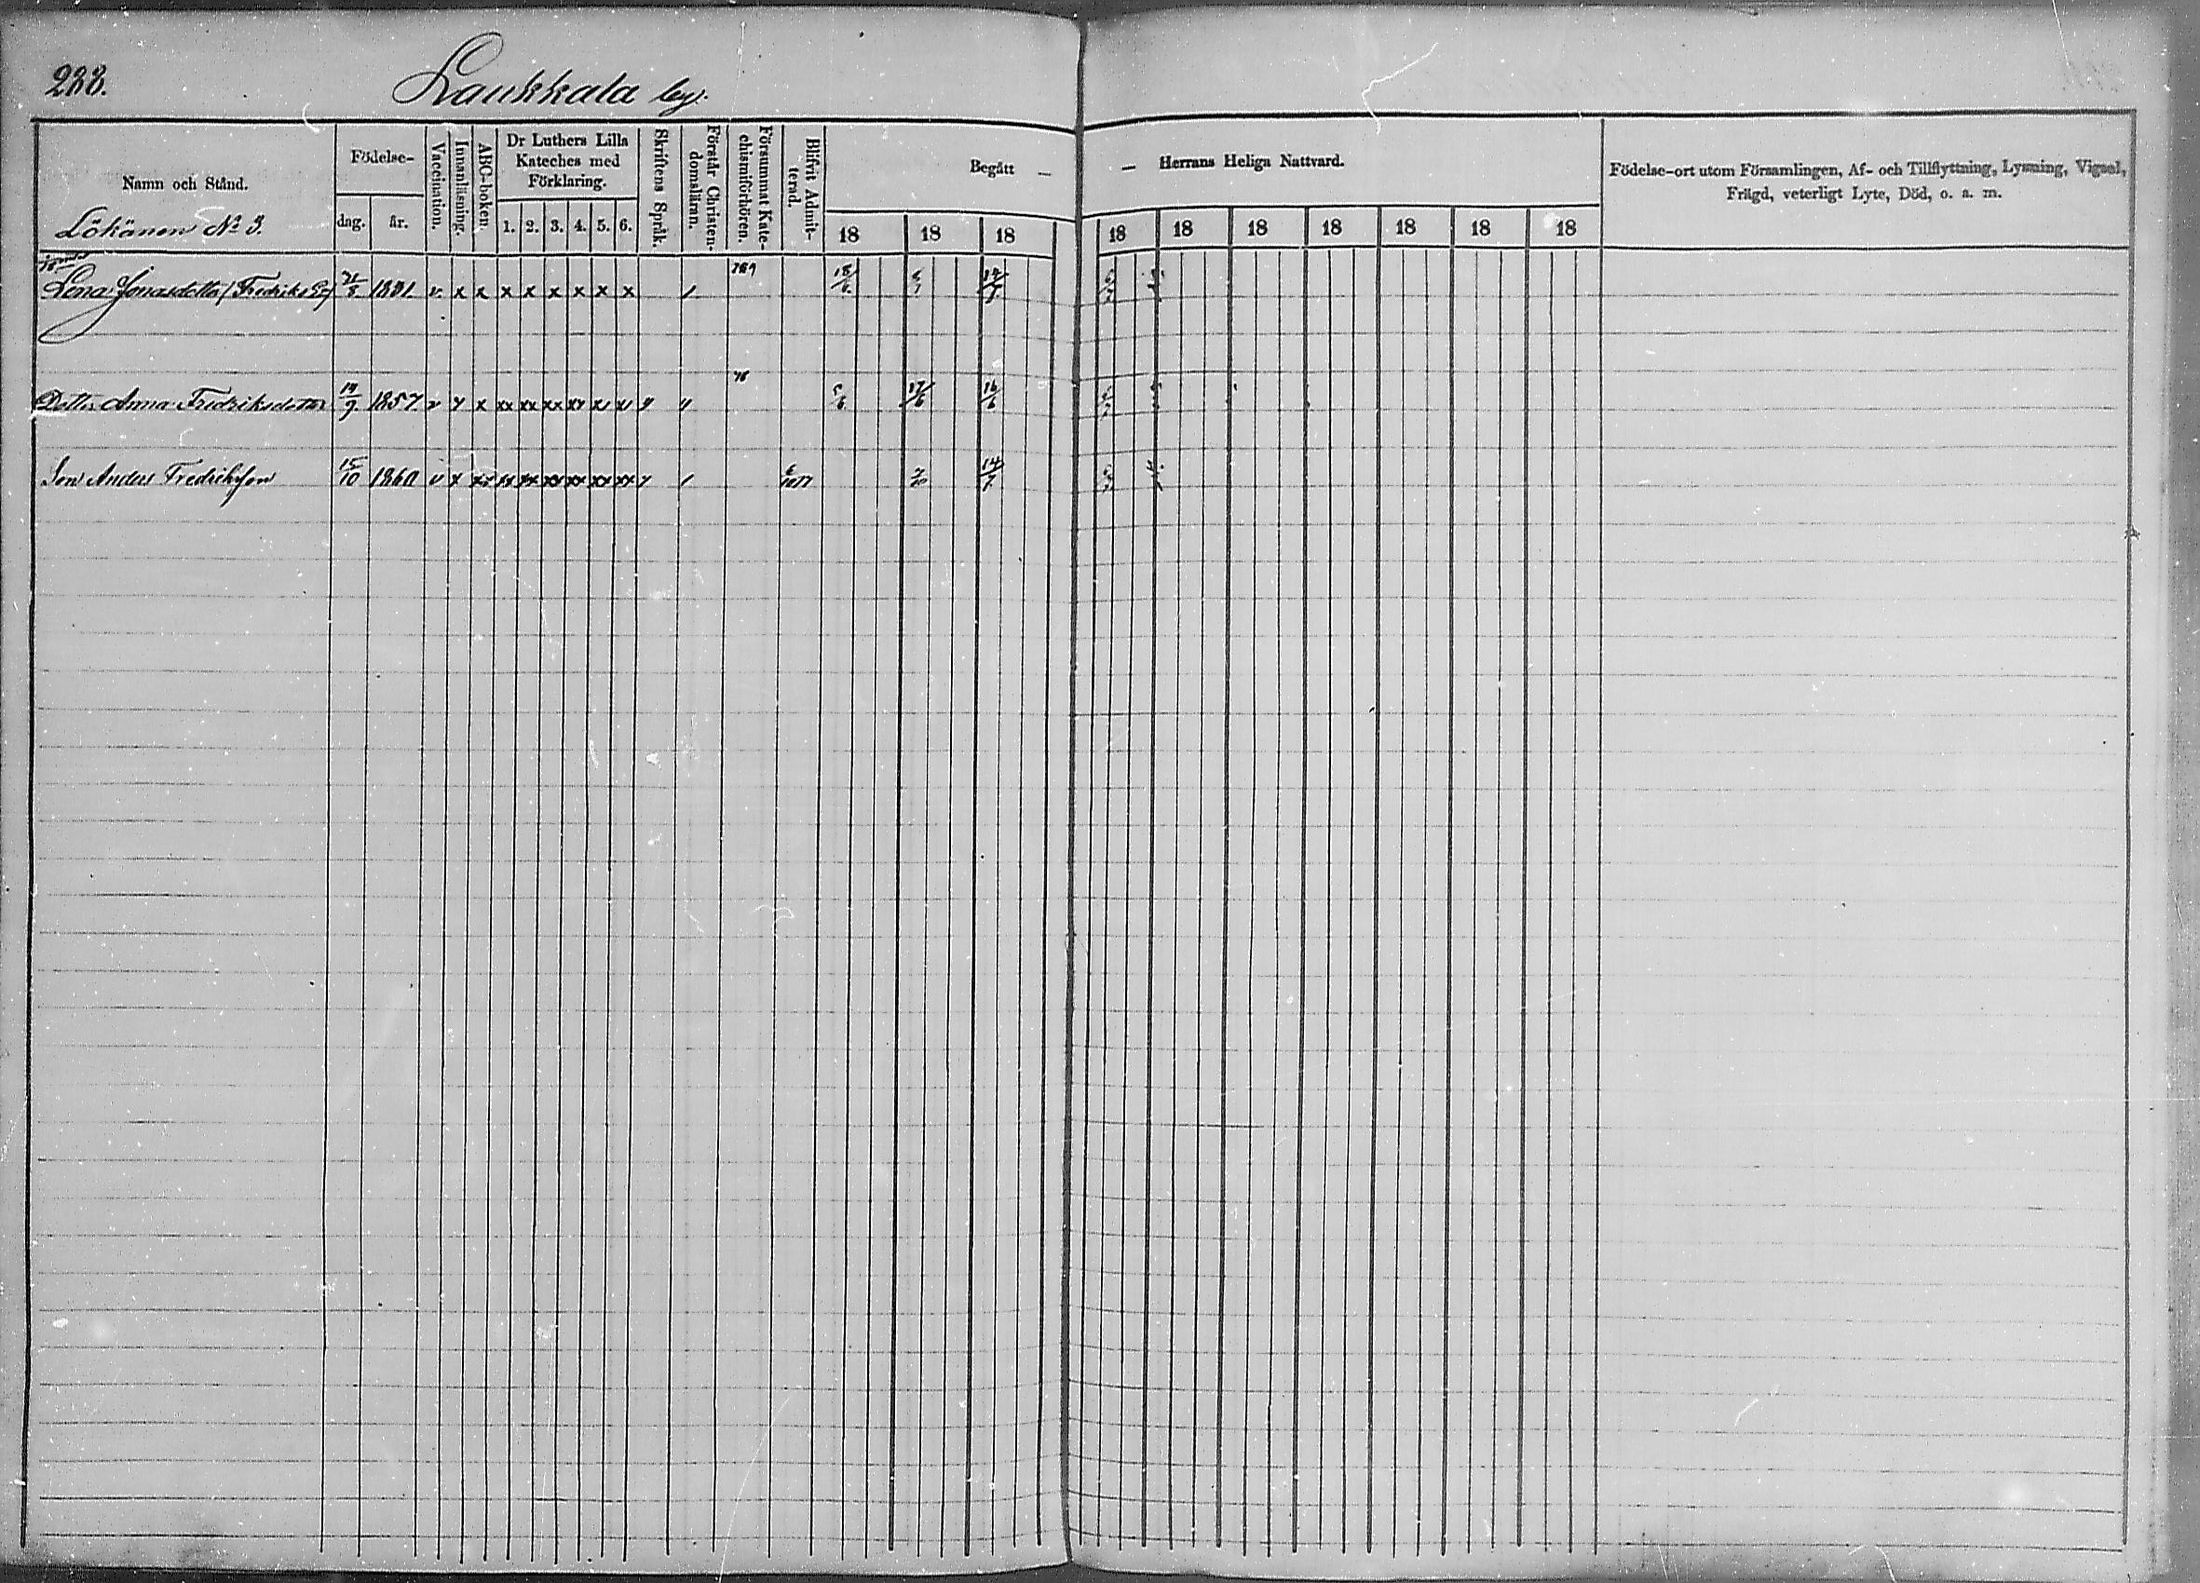 233.
Laukkala by.
Namn och Stånd.
Födelse-
dag. år.
Vaccination.
Innanläsning.
ABC-boken.
Dr Luthers Lilla
Kateches med
Förklaring.
1. 2. 3. 4. 5. 6.
Skriftens Språk.
Förstår Christen-
domslämn.
Försummat Kate-
chismiförhören.
Blifvit Admit-
terad.
Begått —
18 18 18
— Herrans Heliga Nattvard.
18 18 18 18 18 18 18
Födelse-ort utom Församlingen, Af- och Tillflyttning, Lysning, Vigsel,
Frägd, veterligt Lyte, Död, o. a. m.
Lökänen No 3.
Lena Jonasdotter (Fredriks Enka) 21/8. 1831. v. x x x x x x x x / 18/6. 14/7.
Dotter Anna Fredriksdotter 14/9 1857. v y x xx xx xx xx x x y 76 5/6. 17/6 16/6
Son Anders Fredriksson 15/10 1860 v x xx xx xx xx xx xx xx y / 14/7.